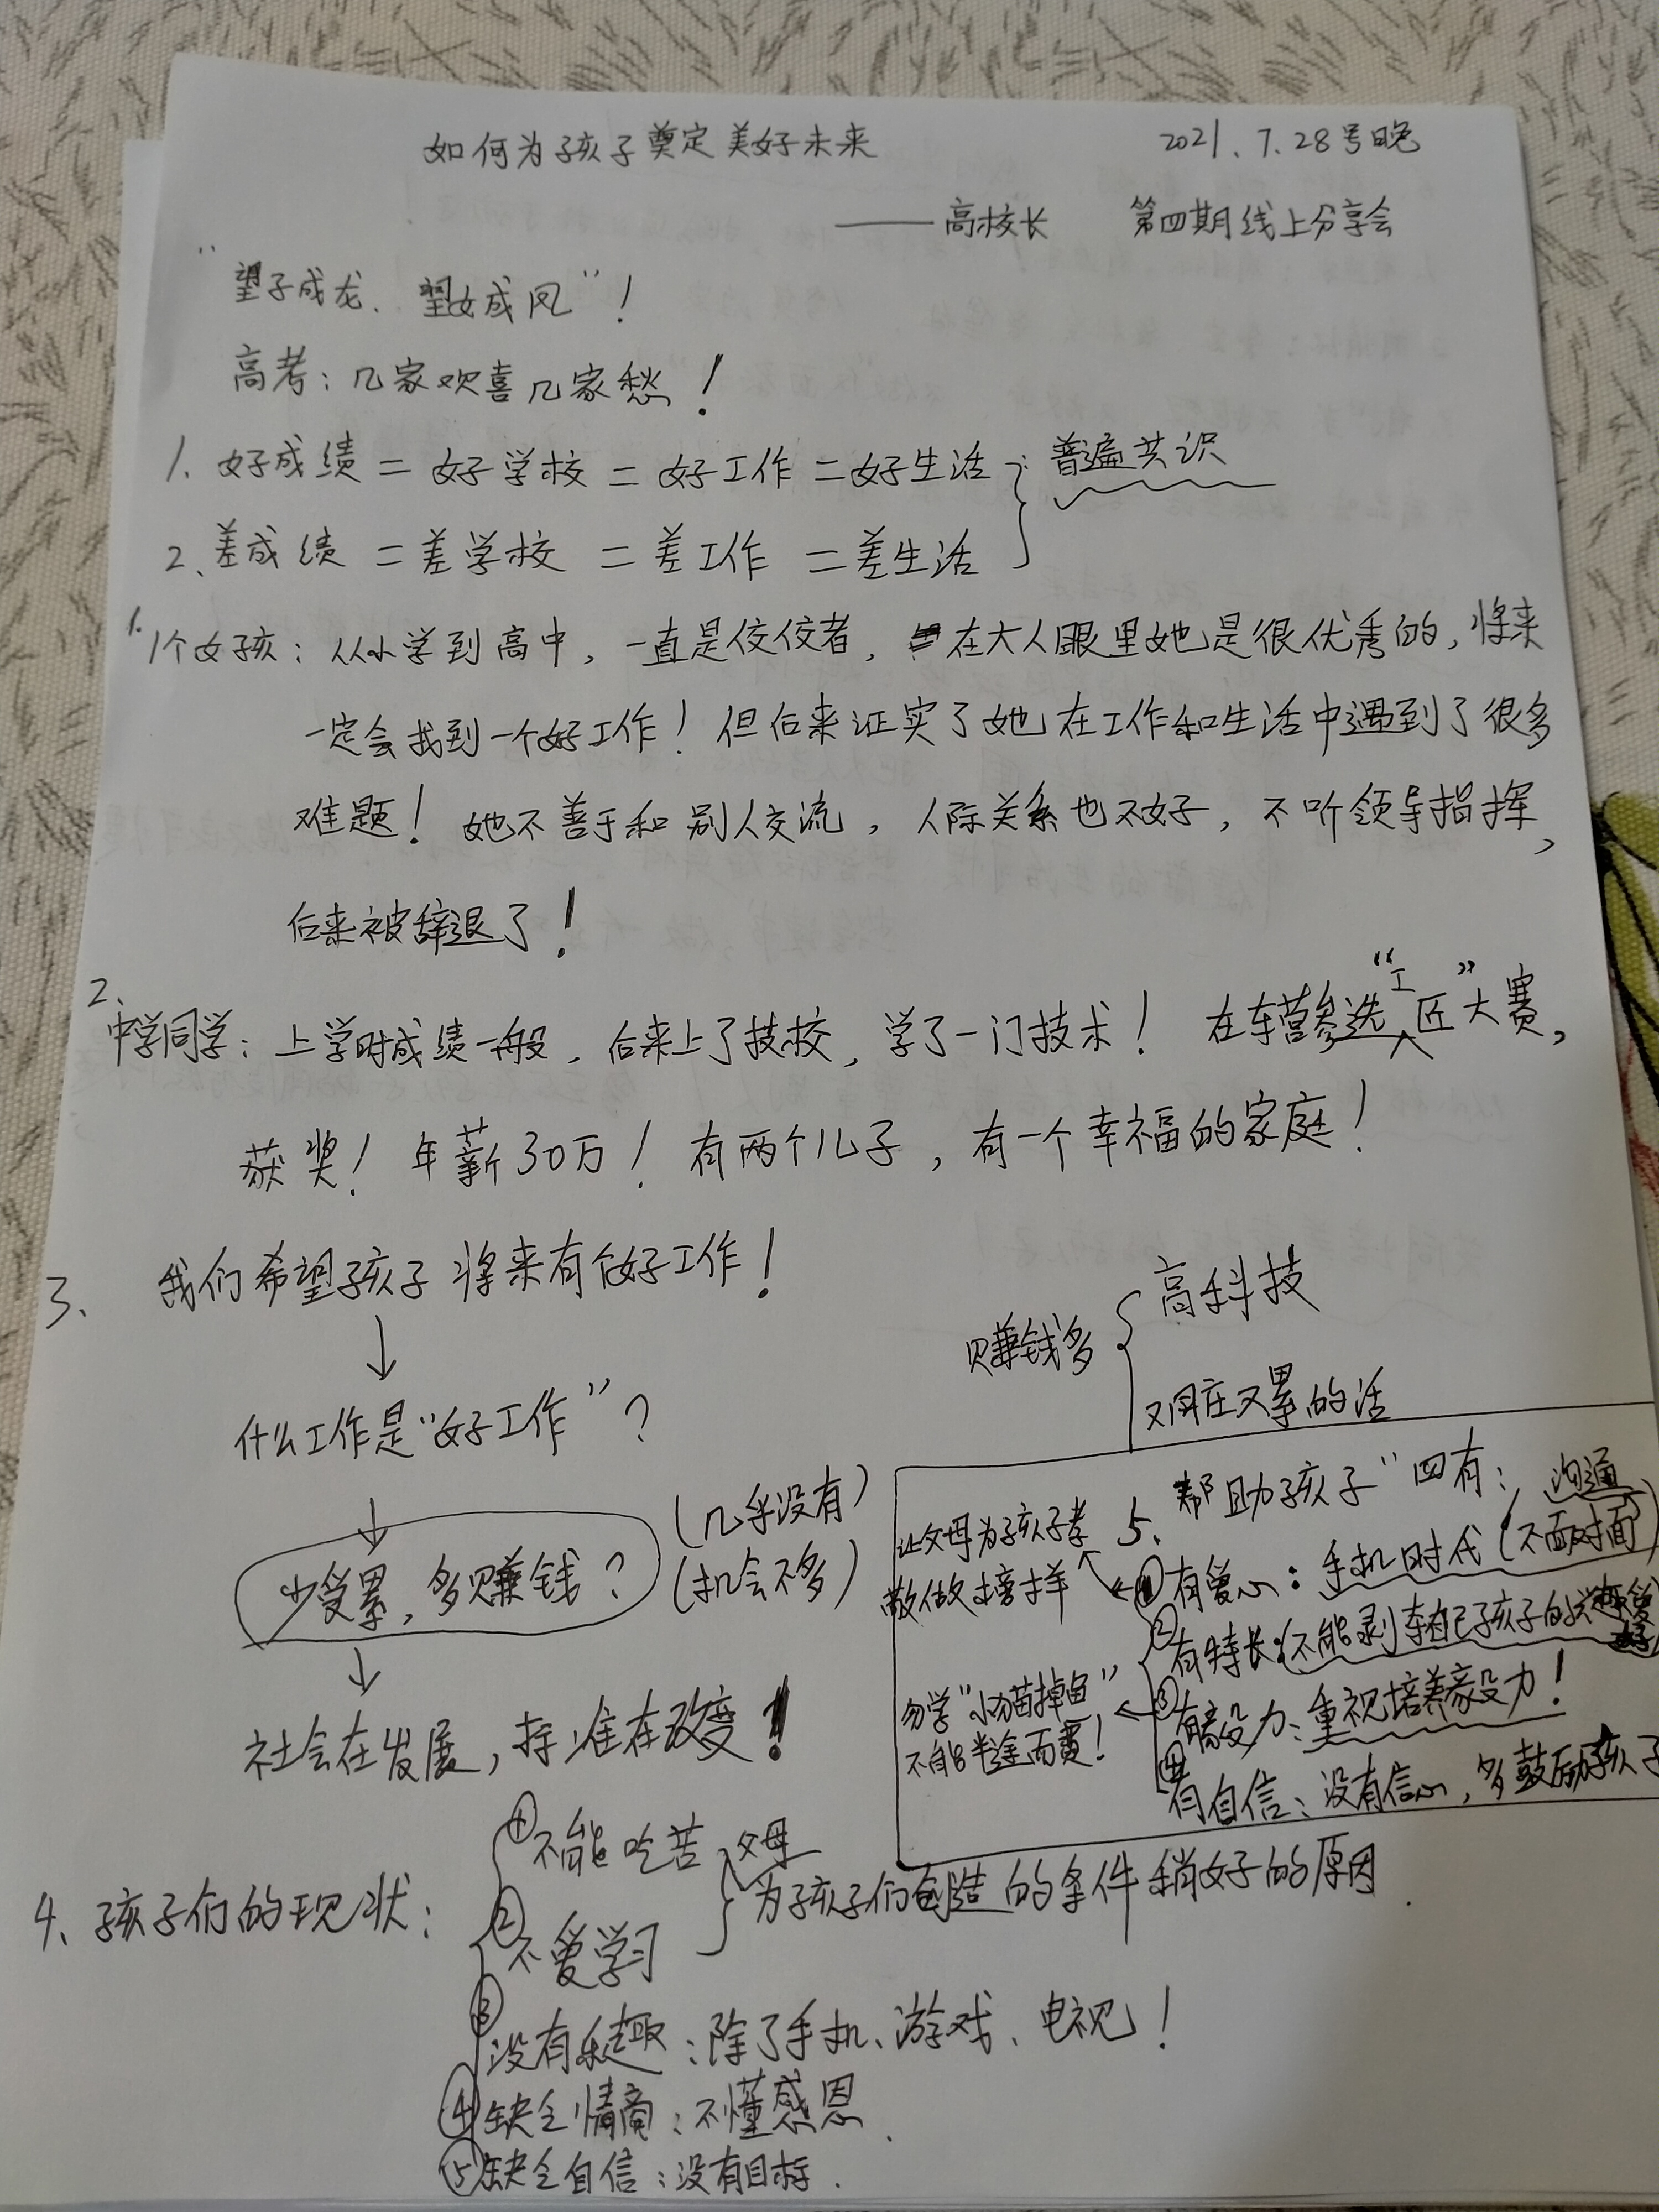 如何为孩子奠定美好未来 2021.7.28号晚
——高校长 第四期线上分享会
“望子成龙、望女成凤”！
高考：几家欢喜几家愁！
1. 好成绩=好学校=好工作=好生活 普遍共识
2、差成绩=差学校=差工作=差生活
1. 1个女孩：从小学到高中，一直是佼佼者，在大人眼里她是很优秀的，将来
一定会找到一个好工作！但后来证实了她在工作和生活中遇到了很多
难题！她不善于和别人交流，人际关系也不好，不听领导指挥，
后来被辞退了！
2、中学同学：上学时成绩一般，后来上了技校，学了一门技术！在东营参选“工匠”大赛，
获奖！年薪30万！有两个儿子，有一个幸福的家庭！
3、我们希望孩子将来有个好工作！
什么工作是“好工作”？
少受累，多赚钱？
(几乎没有)
(机会不多)
社会在发展，标准在改变！
赚钱多
高科技
又脏又累的活
5、帮助孩子“四有：
①有爱心：手机时代（不面对面 沟通）
让父母为孩子孝
敬做榜样
②有特长：不能剥夺自己孩子的兴趣爱好
③有毅力：重视培养毅力！
勿学“小猫掉鱼”
不能半途而费！
④有自信：没有信心，多鼓励孩子
4、孩子们的现状：
①不能吃苦
②不爱学习
父母
为孩子们创造的条件稍好的原因.
③没有乐趣：除了手机、游戏、电视！
④缺乏情商：不懂感恩.
⑤缺乏自信：没有目标.